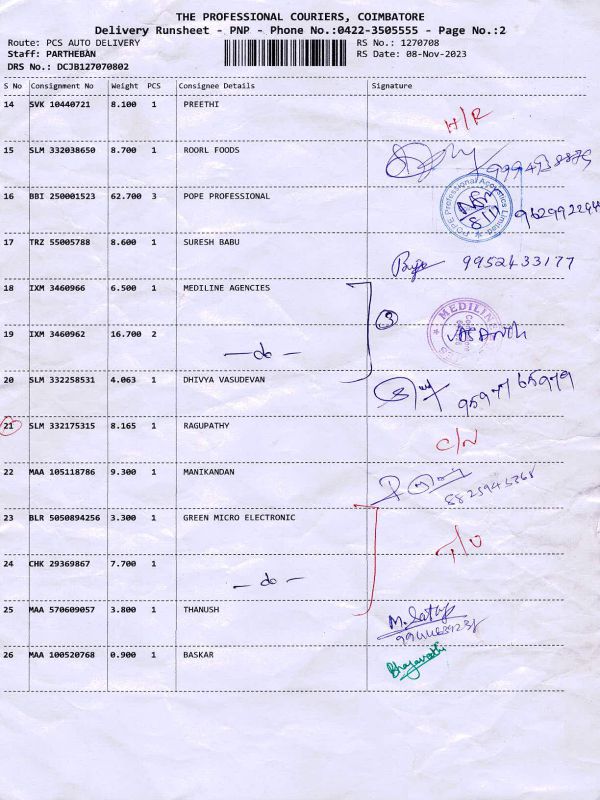 THE PROFESSIONAL COURIERS, COIMBATORE
Delivery Runsheet - PNP - Phone No.:0422-3505555 - Page No.:2
Route: PCS AUTO DELIVERY RS No.: 1270708
Staff: PARTHEBAN RS Date: 08-Nov-2023
DRS No.: DCJB127070802
S No Consignment No Weight PCS Consignee Details Signature
14 SVK 10440721 8.100 1 PREETHI
H/R
15 SLM 332038650 8.700 1 ROORL FOODS
16 BBI 250001523 62.700 3 POPE PROFESSIONAL
POPE Professional Acoustics Limited
8/11
17 TRZ 55005788 8.600 1 SURESH BABU
9952433177
18 IXM 3460966 6.500 1 MEDILINE AGENCIES
MEDILINE
19 IXM 3460962 16.700 2
- do -
VASANTH
20 SLM 332258531 4.063 1 DHIVYA VASUDEVAN
21 SLM 332175315 8.165 1 RAGUPATHY
C/N
22 MAA 105118786 9.300 1 MANIKANDAN
23 BLR 5050894256 3.300 1 GREEN MICRO ELECTRONIC
24 CHK 29369867 7.700 1
- do -
25 MAA 570609057 3.800 1 THANUSH
26 MAA 100520768 0.900 1 BASKAR